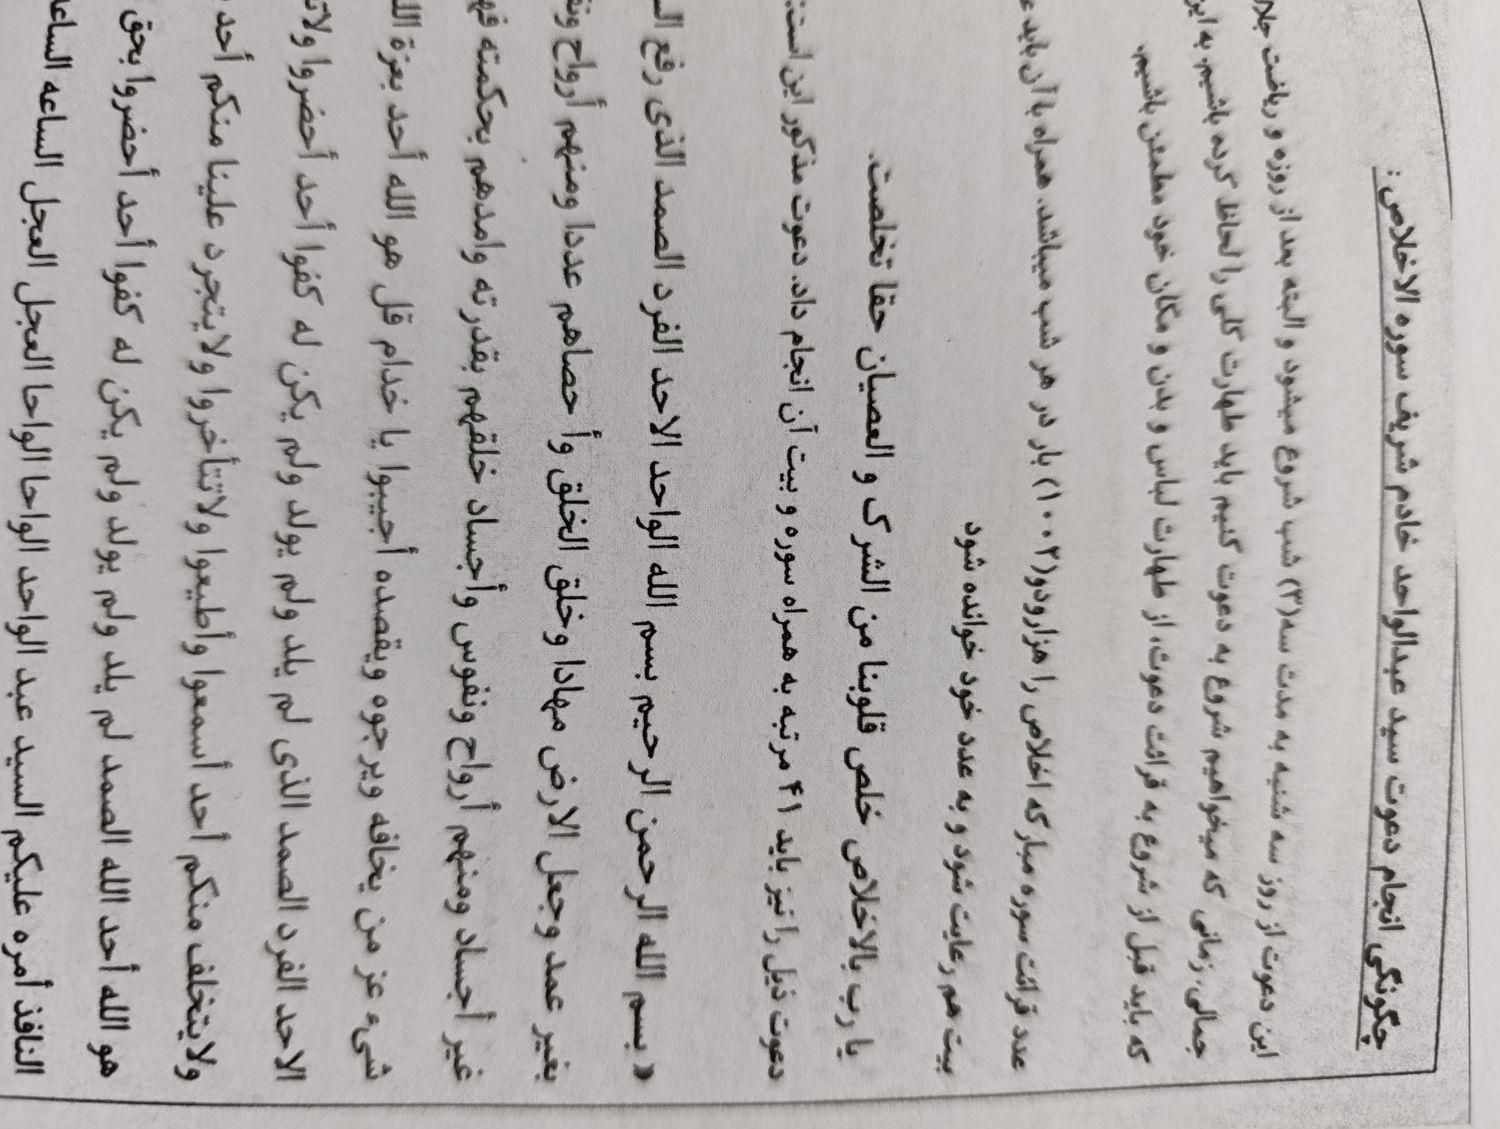 چگونگی انجام دعوت سید عبدالواحد خادم شریف سوره الاخلاص :
این دعوت از روز سه شنبه به مدت سه(۳) شب شروع میشود و البته بعد از روزه و ریاضت
جمالی. زمانی که میخواهیم شروع به دعوت کنیم باید طهارت کلی را لحاظ کرده باشیم. به
که باید قبل از شروع به قرائت دعوت، از طهارت لباس و بدن و مکان خود مطمئن باشیم.
عدد قرائت سوره مبارکه اخلاص را هزارودو(۱۰۰۲) بار در هر شب میباشد. همراه با آن باید
بیت هم رعایت شود و به عدد خود خوانده شود
یا رب بالاخلاص خلص قلوبنا من الشرک و العصیان حقا تخلصت.
دعوت ذیل را نیز باید ۴۱ مرتبه به همراه سوره و بیت آن انجام داد. دعوت مذکور این است:
« بسم الله الرحمن الرحیم بسم الله الواحد الاحد الفرد الصمد الذی رفع
بغیر عمد وجعل الارض مهادا وخلق الخلق وأحصاهم عددا ومنهم أرواح
غیر أجساد ومنهم أرواح ونفوس وأجساد خلقهم بقدرته وامدهم بحکمته
شیء عز من یخافه ویرجوه ویقصده أجیبوا یا خدام قل هو الله أحد بعزة
الاحد الفرد الصمد الذی لم یلد ولم یولد ولم یکن له کفوا أحد أحضروا
ولایتخلف منکم أحد أسمعوا وأطیعوا ولاتتأخروا ولایتجرد علینا منکم أحد
هو الله أحد الله الصمد لم یلد ولم یولد ولم یکن له کفوا أحد أحضروا بحق
النافذ أمره علیکم السید عبد الواحد الواحا الواحا العجل العجل الساعه